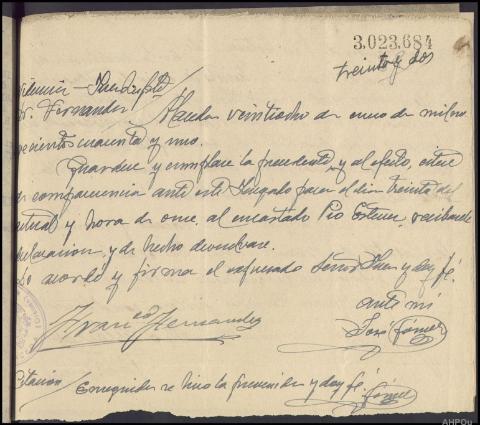 3.023.684
treinta y dos
Providencia - Juez
Sr. Fernandez / Maceda veintiocho de enero de mil no
vecientos cuarenta y uno.
Guardese y cumplase la precedente, y al efecto, citese
de comparecencia ante este Juzgado para el dia treinta del
actual y hora de once, al encartado Pio Esteve, recibase
declaracion, y de hecho devuelvase.
Lo acordó y firma el expresado Señor Juez y doy fé.
ante mi
Franco Fernandez
José Gómez
Citacion / Enseguida se hizo la prevenida y doy fé.
Gómez
AHPOu